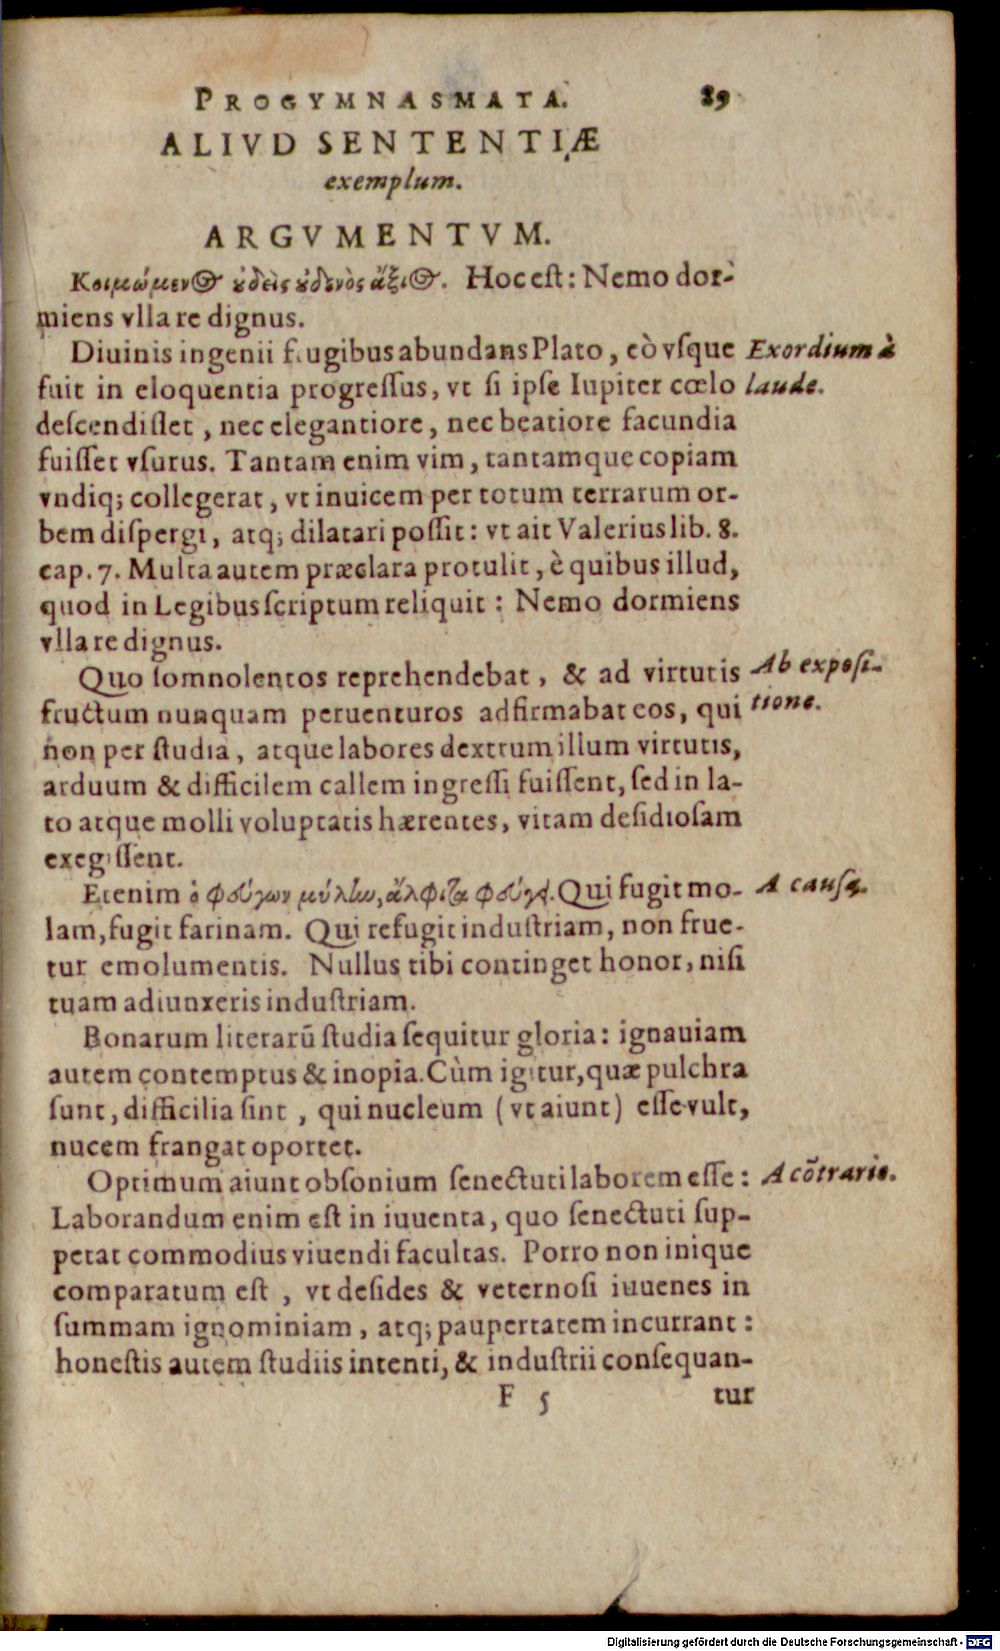 PROGYMNASMATA. 89
ALIVD SENTENTIÆ
exemplum.
ARGVMENTVM.
Κοιμώμενος ȣ̓δεὶς ȣ̓δενὸς ἄξιος. Hoc est: Nemo dor-
miens vlla re dignus.
Diuinis ingenii frugibus abundans Plato, eò vſque Exordium à
fuit in eloquentia progreſſus, vt ſi ipſe Iupiter cœlo laude.
deſcendiſſet, nec elegantiore, nec beatiore facundia
fuiſſet vſurus. Tantam enim vim, tantamque copiam
vndiq; collegerat, vt inuicem per totum terrarum or-
bem diſpergi, atq; dilatari poſſit: vt ait Valerius lib. 8.
cap. 7. Multa autem præclara protulit, è quibus illud,
quod in Legibus ſcriptum reliquit: Nemo dormiens
vlla re dignus.
Quo ſomnolentos reprehendebat, & ad virtutis Ab expoſi-
fructum nunquam peruenturos adfirmabat eos, qui tione.
non per ſtudia, atque labores dextrum illum virtutis,
arduum & difficilem callem ingreſſi fuiſſent, ſed in la-
to atque molli voluptatis hærentes, vitam deſidioſam
exegiſſent.
Etenim ὁ φεύγων μύλων, ἄλφιτα φεύγει. Qui fugit mo- A causa.
lam, fugit farinam. Qui refugit induſtriam, non frue-
tur emolumentis. Nullus tibi continget honor, niſi
tuam adiunxeris induſtriam.
Bonarum literarū ſtudia ſequitur gloria: ignauiam
autem contemptus & inopia. Cùm igitur, quæ pulchra
ſunt, difficilia ſint, qui nucleum (vt aiunt) eſſe vult,
nucem frangat oportet.
Optimum aiunt obſonium ſenectuti laborem eſſe: A cōtrario.
Laborandum enim eſt in iuuenta, quo ſenectuti ſup-
petat commodius viuendi facultas. Porro non inique
comparatum eſt, vt deſides & veternoſi iuuenes in
ſummam ignominiam, atq; paupertatem incurrant:
honeſtis autem ſtudiis intenti, & induſtrii conſequan-
F 5 tur
Digitalisierung gefördert durch die Deutsche Forschungsgemeinschaft - DFG